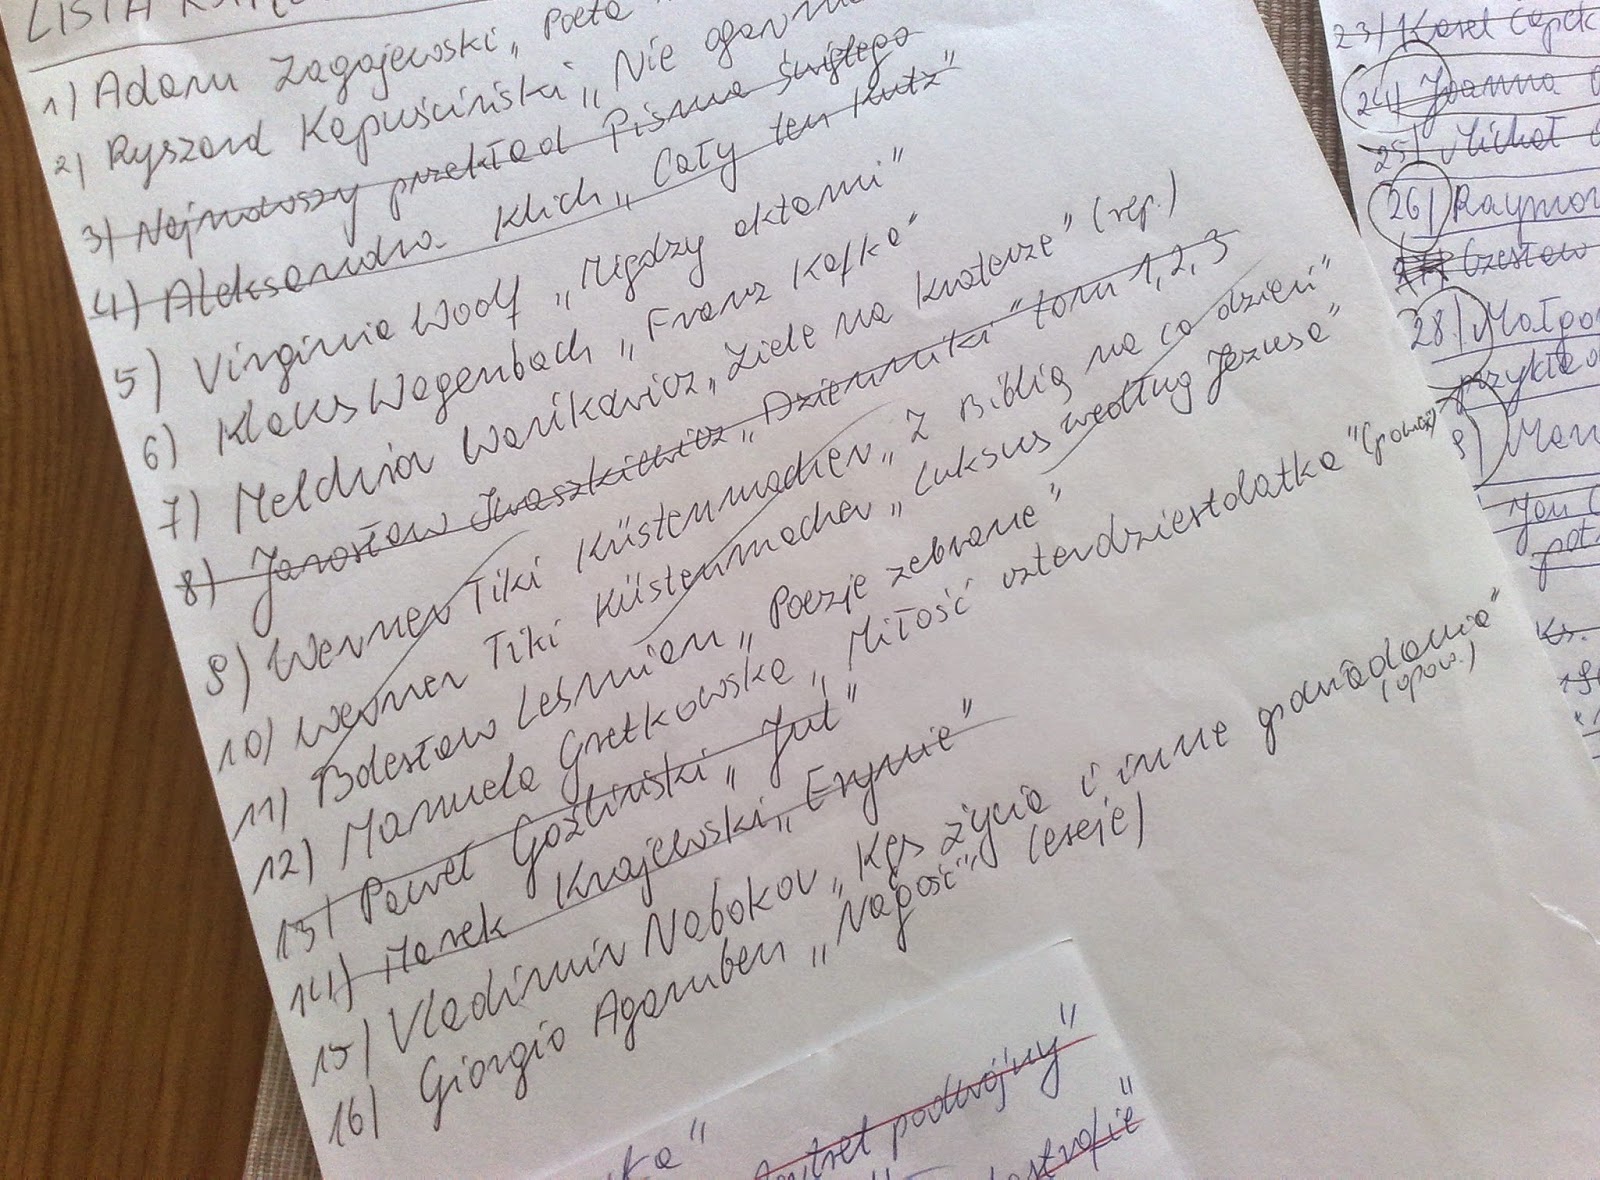 LISTA
1) Adam Zagajewski „Poeta
2) Ryszard Kapuściński „Nie ogarnia
3) Najnowszy przekład Pisma Świętego
4) Aleksandra Klich „Cały ten Kutz"
5) Virginia Woolf „Między aktami"
6) Klaus Wagenbach „Franz Kafka"
7) Melchior Wańkowicz „Ziele na kraterze" (rep.)
8) Jarosław Iwaszkiewicz „Dzienniki" tom 1, 2, 3
9) Werner Tiki Küstenmacher „Z Biblią na co dzień"
10) Werner Tiki Küstenmacher „Luksus według Jezusa"
11) Bolesław Leśmian „Poezje zebrane"
12) Manuela Gretkowska „Miłość czterdziestolatka"
13) Paweł Goźliński „Jul"
14) Marek Krajewski „Erynie"
15) Vladimir Nabokov „Kęs życia i inne opowiadania"
(opow.)
16) Giorgio Agamben „Nagość" (eseje)
podwójny"
23) Karel Čapek
24) Joanna
25) Michał
26) Raymon
Czesław
28) Małgo
Ks.